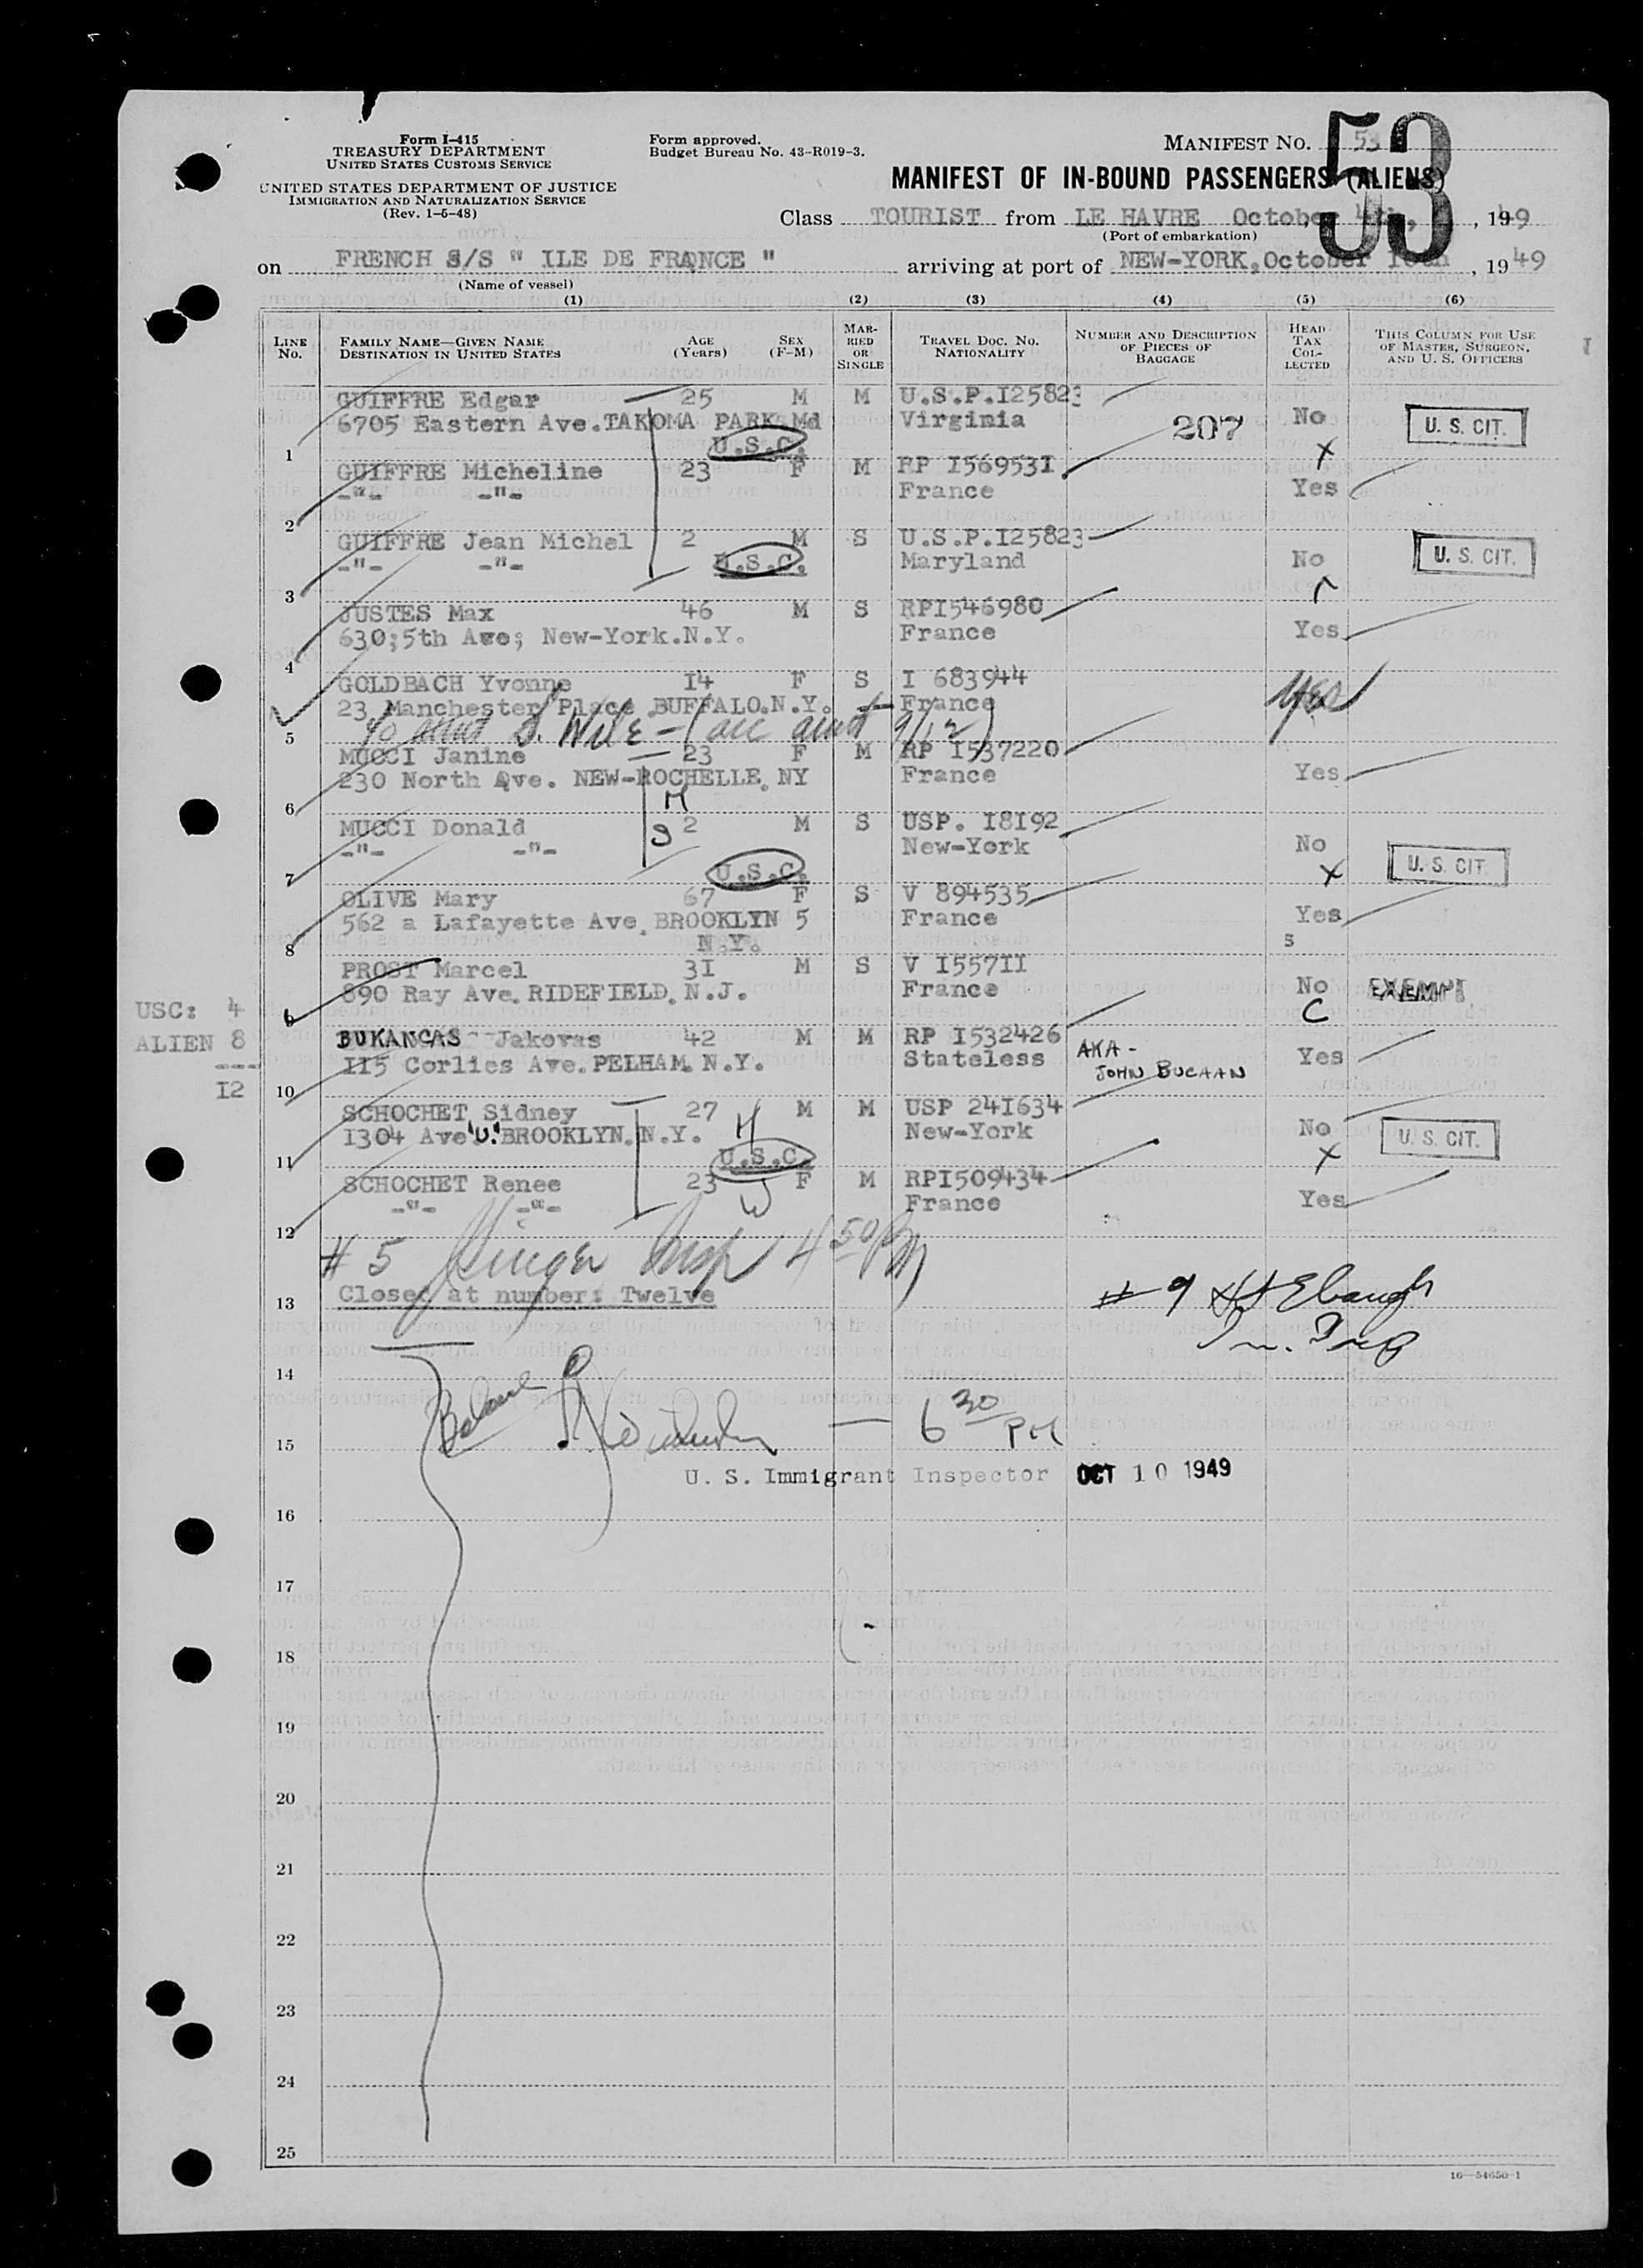 Form I-415
TREASURY DEPARTMENT
UNITED STATES CUSTOMS SERVICE
UNITED STATES DEPARTMENT OF JUSTICE
IMMIGRATION AND NATURALIZATION SERVICE
(Rev. 1-6-48)
Form approved.
Budget Bureau No. 43-R019-3.
MANIFEST NO. 53
53
MANIFEST OF IN-BOUND PASSENGERS (ALIENS)
Class TOURIST from LE HAVRE October 4th, , 1949
(Port of embarkation)
on FRENCH S/S " ILE DE FRANCE " arriving at port of NEW-YORK, October 10th , 1949
(Name of vessel)
(1) (2) (3) (4) (5) (6)
LINE No. FAMILY NAME—GIVEN NAME DESTINATION IN UNITED STATES AGE (Years) SEX (F-M) MARRIED OR SINGLE TRAVEL DOC. NO. NATIONALITY NUMBER AND DESCRIPTION OF PIECES OF BAGGAGE HEAD TAX COLLECTED THIS COLUMN FOR USE OF MASTER, SURGEON, AND U. S. OFFICERS
GUIFFRE Edgar 25 M M U.S.P.I25823
6705 Eastern Ave.TAKOMA PARK Md Virginia 207 No U. S. CIT.
1 U.S.C. X
GUIFFRE Micheline 23 F M RP I56953I
-"- -"- France Yes
2
GUIFFRE Jean Michel 2 M S U.S.P.I25823
-"- -"- U.S.C. Maryland No U. S. CIT.
3
JUSTES Max 46 M S RPI546980
630;5th Ave; New-York.N.Y. France Yes
4
GOLDBACH Yvonne 14 F S I 683944
23 Manchester Place BUFFALO.N.Y. France Yes
5
MUCCI Janine 23 F M RP I537220
230 North Ave. NEW-ROCHELLE. NY France Yes
6 M
MUCCI Donald S 2 M S USP. I8I92
-"- -"- New-York No U. S. CIT.
7 U.S.C. X
OLIVE Mary 67 F S V 894535
562 a Lafayette Ave. BROOKLYN 5 France Yes
8 N.Y. S
PROST Marcel 3I M S V I557II
890 Ray Ave. RIDEFIELD. N.J. France No EXEMPT
9 C
USC: 4
ALIEN 8
---
I2
BUKANCAS Jakovas 42 M M RP I532426
115 Corlies Ave. PELHAM. N.Y. Stateless AKA - JOHN BUCAAN Yes
10
SCHOCHET Sidney 27 H M M USP 24I634
I304 Ave "U." BROOKLYN. N.Y. New-York No U. S. CIT.
11 U.S.C. X
SCHOCHET Renee 23 W F M RPI509434
-"- -"- France Yes
12
# 5 Insp 4 50 PM
13 Closed at number: Twelve
# 9 Ebaugh
14
Balance
15 — 6 30 PM
U. S. Immigrant Inspector OCT 10 1949
16
17
18
19
20
21
22
23
24
25
16—54650-1